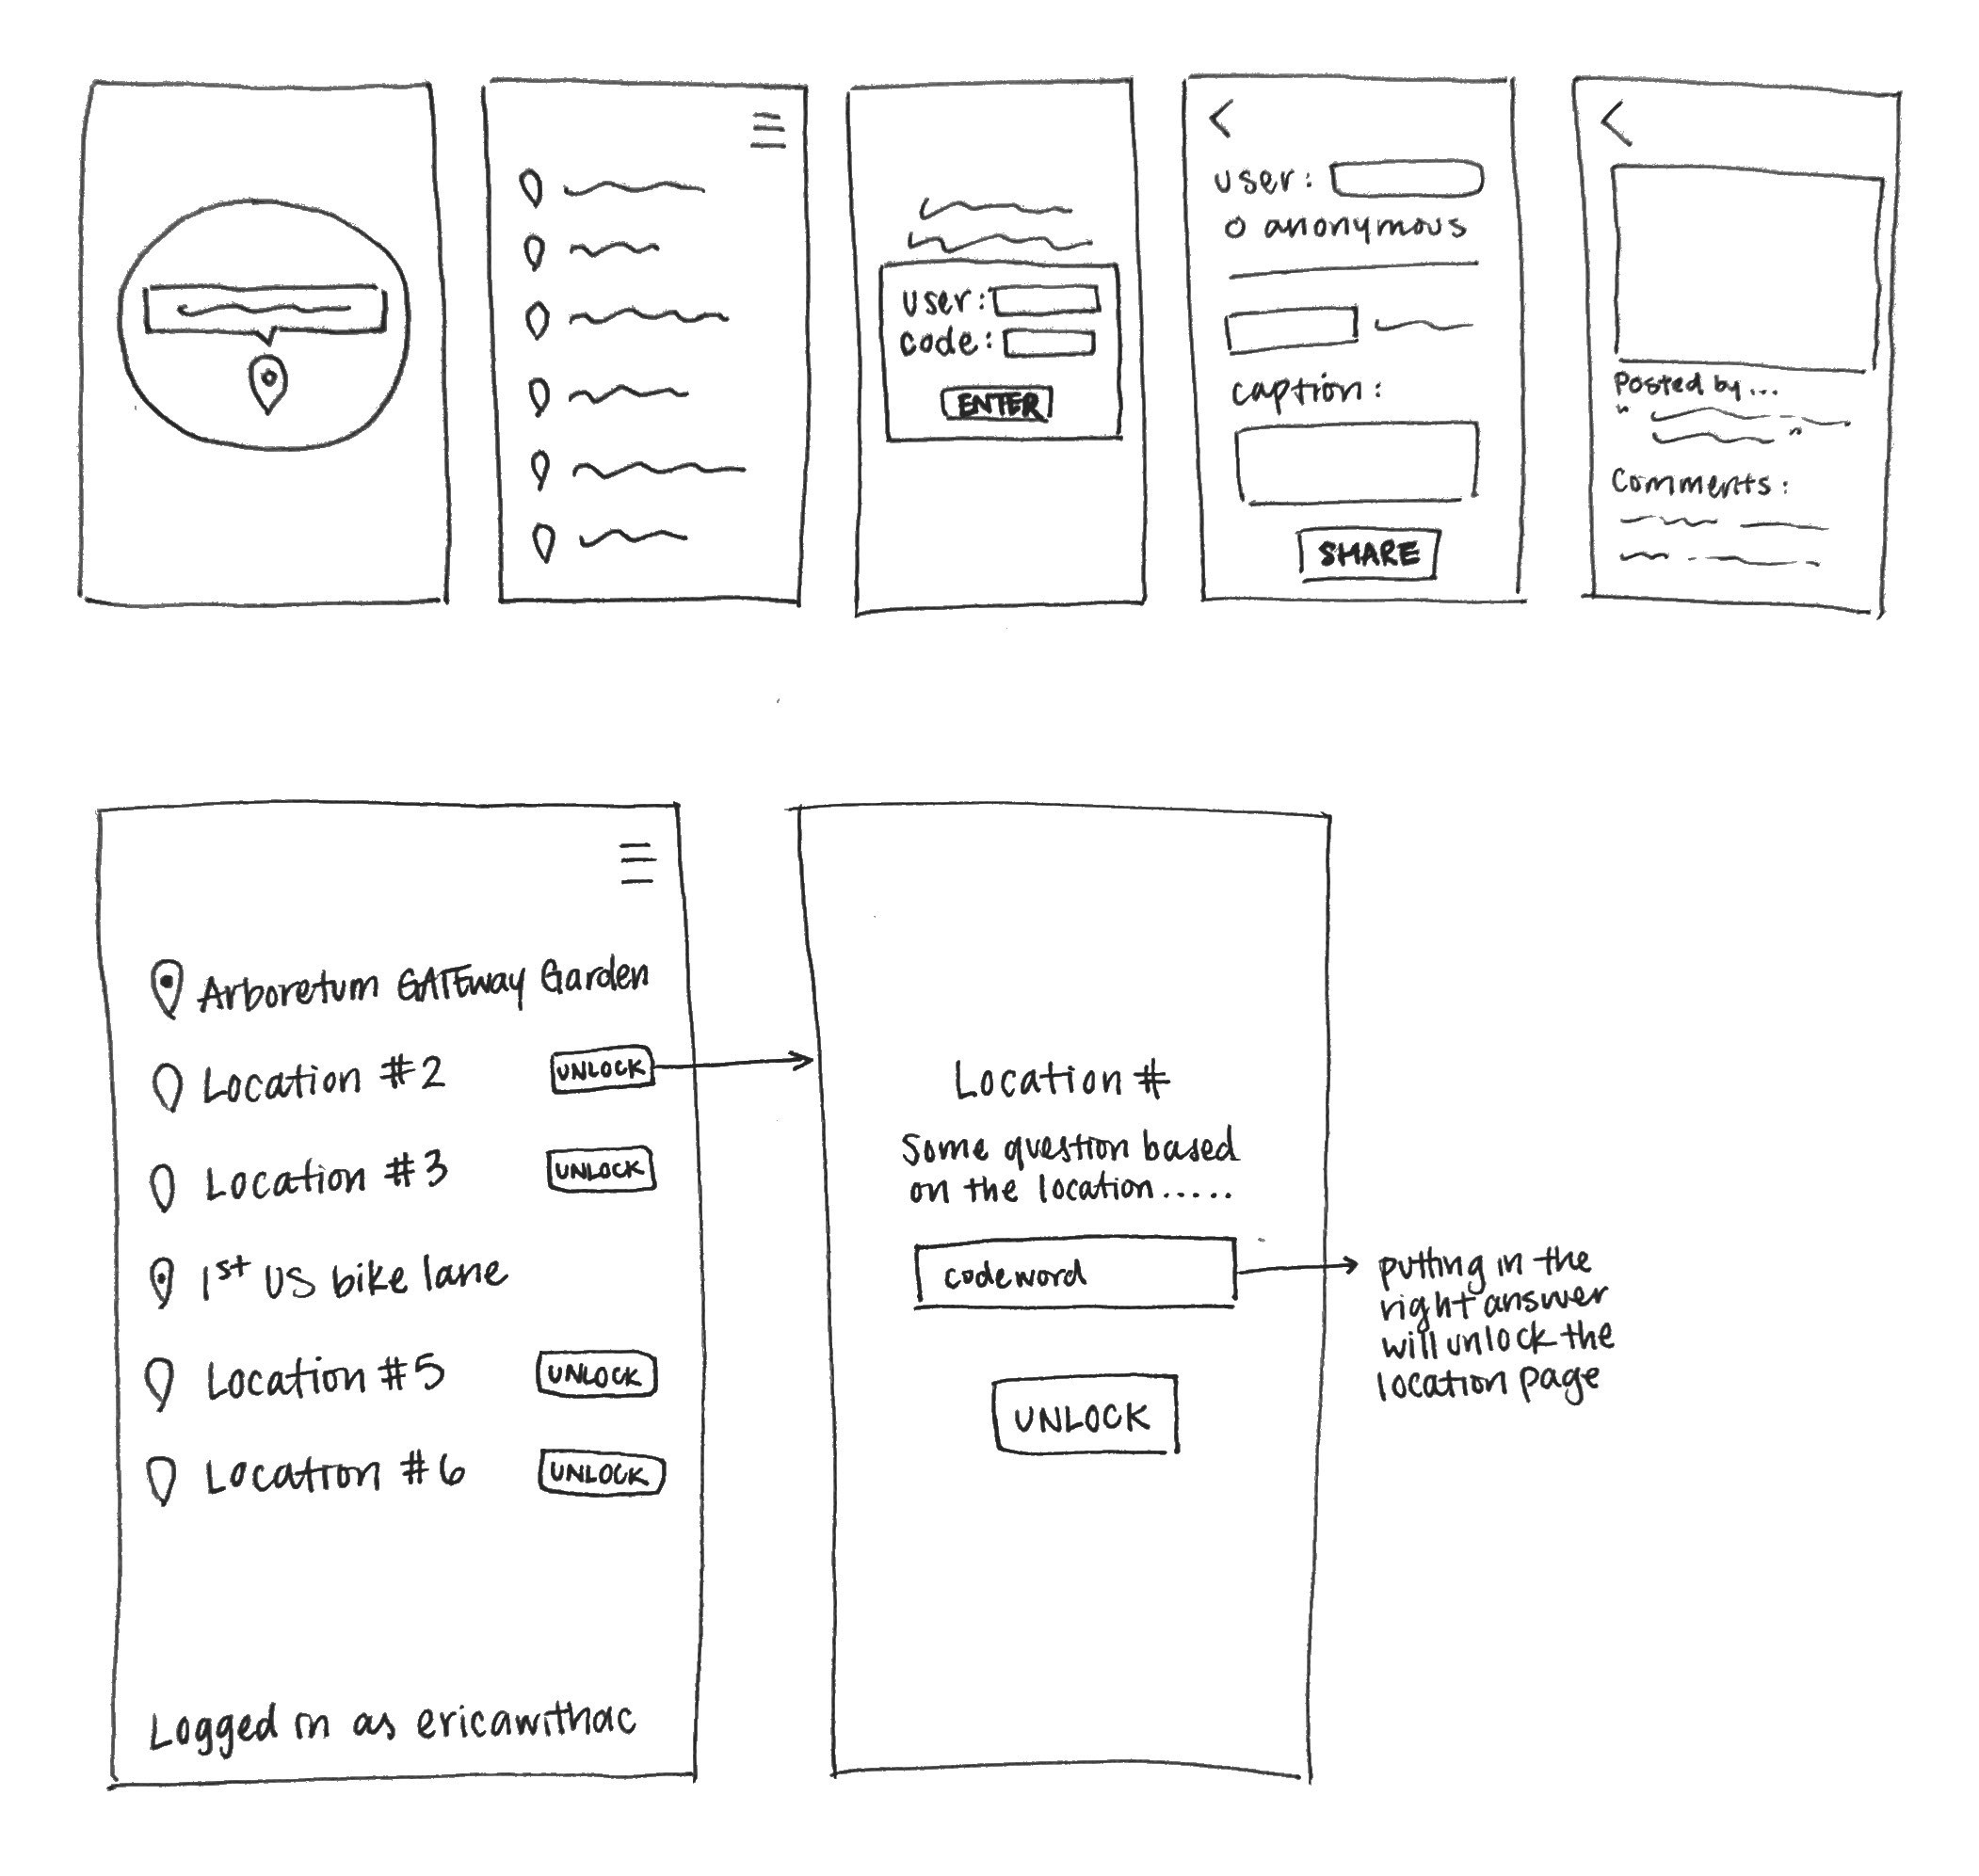 user:
code:
ENTER
user:
anonymous
caption:
SHARE
Posted by...
" "
Comments:
Arboretum GATEway Garden
Location #2 UNLOCK
Location #3 UNLOCK
1st US bike lane
Location #5 UNLOCK
Location #6 UNLOCK
Logged in as ericawithac
Location #
Some question based
on the location.....
codeword
UNLOCK
putting in the
right answer
will unlock the
location page